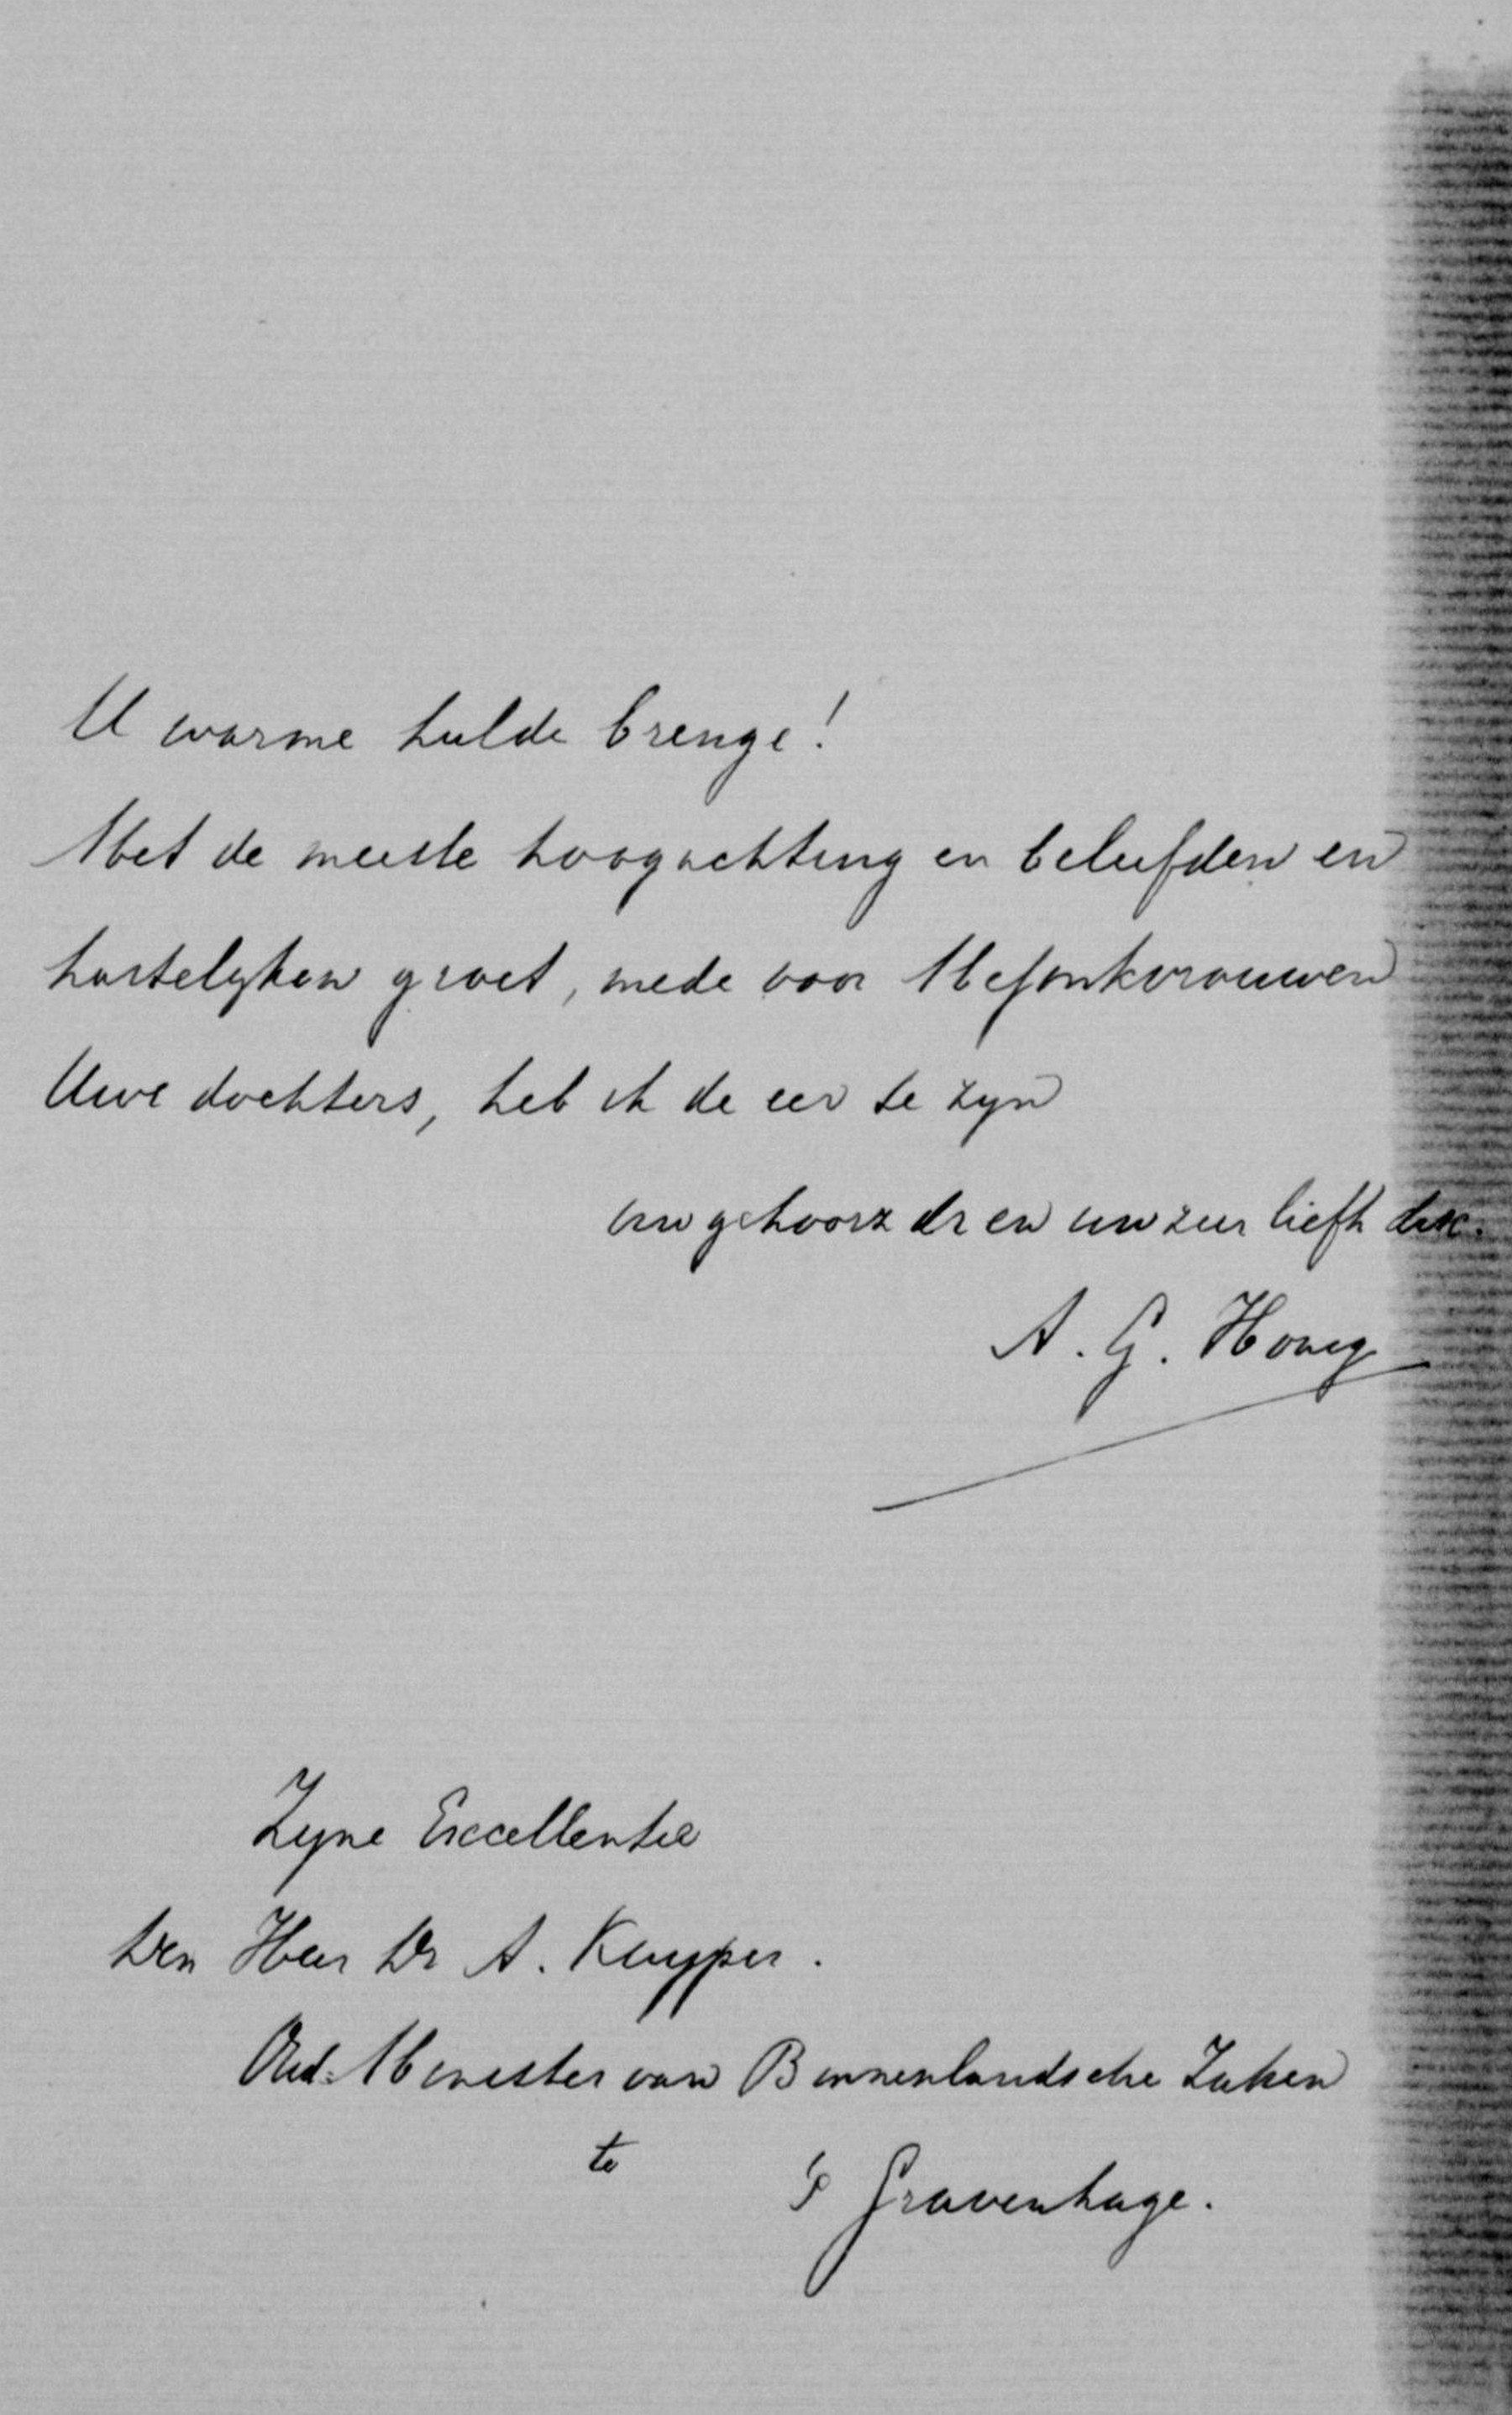 U warme hulde brenge!
Met de meeste hoogachting en beleefden en
hartelyken groet, mede voor Mejonkvrouwen
Uwe dochters, heb ik de eer te zyn
uw gehoorz dr en uw zeer liefh
A. G. Honig
Zyne Excellentie
Den Heer Dr A. Kuyper.
Oud-Minister van Binnenlandsche Zaken
te 's Gravenhage.